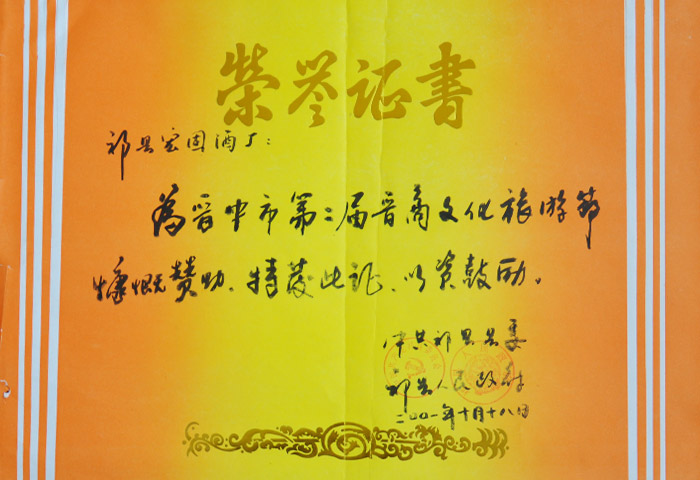 荣誉证书
祁县宏固酒厂:
为晋中市第二届晋商文化旅游节
慷慨赞助、特发此证、以资鼓励。
中共祁县县委
祁县人民政府
二〇〇一年十月十八日